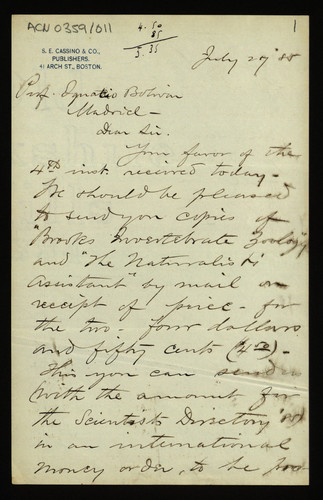 ACN 0359/011
1
4.50
85
5.35
S. E. CASSINO & CO.,
PUBLISHERS.
41 ARCH ST., BOSTON.
July 20 '85
Prof. Ignacio Bolivar
Madrid —
Dear Sir.
Your favor of the
4th inst. received today.
We should be pleased
to send you copies of
"Brooks Invertebrate Zoology"
and "The Naturalists
Assistant" by mail on
receipt of price - for
the two - four dollars
and fifty cents
This you can send
with the amount for
the Scientists Directory '85
in an international
money order, to be